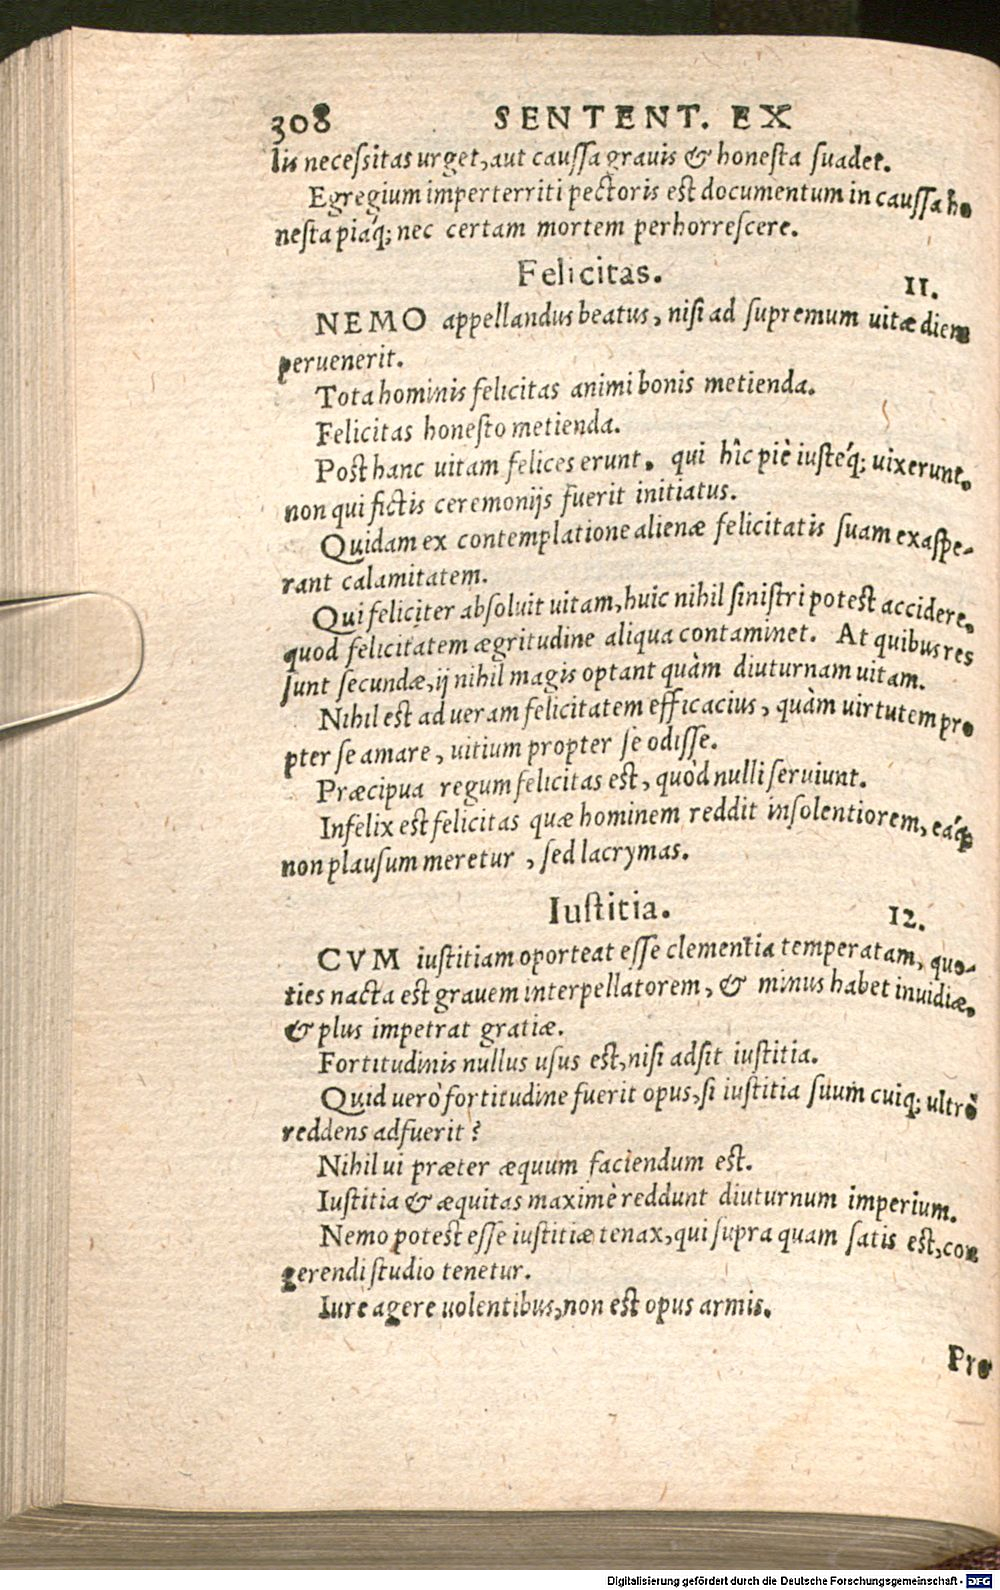 308 SENTENT. EX
lis necessitas urget, aut caussa grauis & honesta suadet.
Egregium imperterriti pectoris est documentum in caussa ho
nesta piáq; nec certam mortem perhorrescere.
Felicitas. 11.
NEMO appellandus beatus, nisi ad supremum uitæ diem
peruenerit.
Tota hominis felicitas animi bonis metienda.
Felicitas honesto metienda.
Post hanc uitam felices erunt, qui hîc piè iustéq; uixerunt,
non qui fictis ceremonijs fuerit initiatus.
Quidam ex contemplatione alienæ felicitatis suam exaspe-
rant calamitatem.
Qui feliciter absoluit uitam, huic nihil sinistri potest accidere,
quod felicitatem ægritudine aliqua contaminet. At quibus res
sunt secundæ, ij nihil magis optant quàm diuturnam uitam.
Nihil est ad ueram felicitatem efficacius, quàm uirtutem pro
pter se amare, uitium propter se odisse.
Præcipua regum felicitas est, quòd nulli seruiunt.
Infelix est felicitas quæ hominem reddit insolentiorem, eáq;
non plausum meretur, sed lacrymas.
Iustitia. 12.
CVM iustitiam oporteat esse clementia temperatam, quo-
ties nacta est grauem interpellatorem, & minus habet inuidiæ,
& plus impetrat gratiæ.
Fortitudinis nullus usus est, nisi adsit iustitia.
Quid uerò fortitudine fuerit opus, si iustitia suum cuiq; ultrò
reddens adfuerit?
Nihil ui præter æquum faciendum est.
Iustitia & æquitas maximè reddunt diuturnum imperium.
Nemo potest esse iustitiæ tenax, qui supra quam satis est, con
gerendi studio tenetur.
Iure agere uolentibus, non est opus armis.
Pro
Digitalisierung gefördert durch die Deutsche Forschungsgemeinschaft - DFG